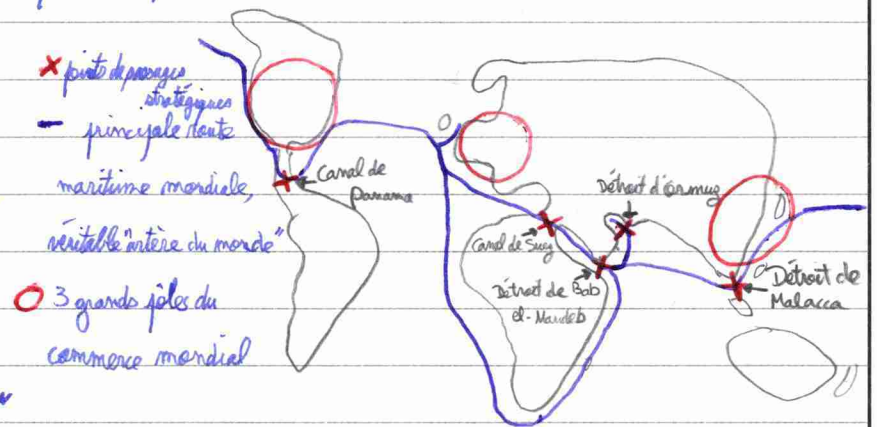 points de passages
stratégiques
principale route
maritime mondiale,
véritable "artère du monde"
3 grands pôles du
commerce mondial
Canal de
Panama
Canal de Suez
Détroit d'ormuz
Détroit de Bab
el-Mandeb
Détroit de
Malacca